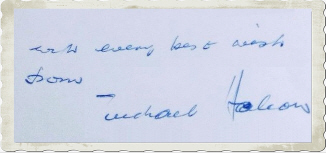 with every best wish
from
Michael